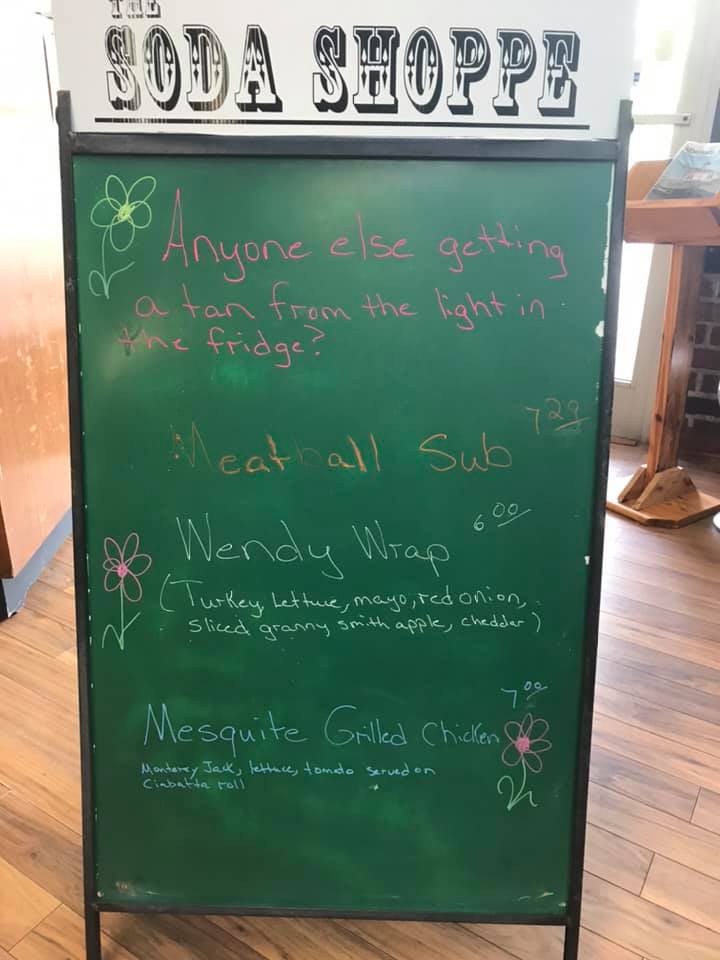 THE
SODA SHOPPE
Anyone else getting
a tan from the light in
the fridge?
Meatball Sub 7 29
Wendy Wrap 6 00
(Turkey, Lettuce, mayo, red onion,
sliced granny smith apple, chedder)
Mesquite Grilled Chicken 7 00
Monterey Jack, lettuce, tomato served on
Ciabatta roll